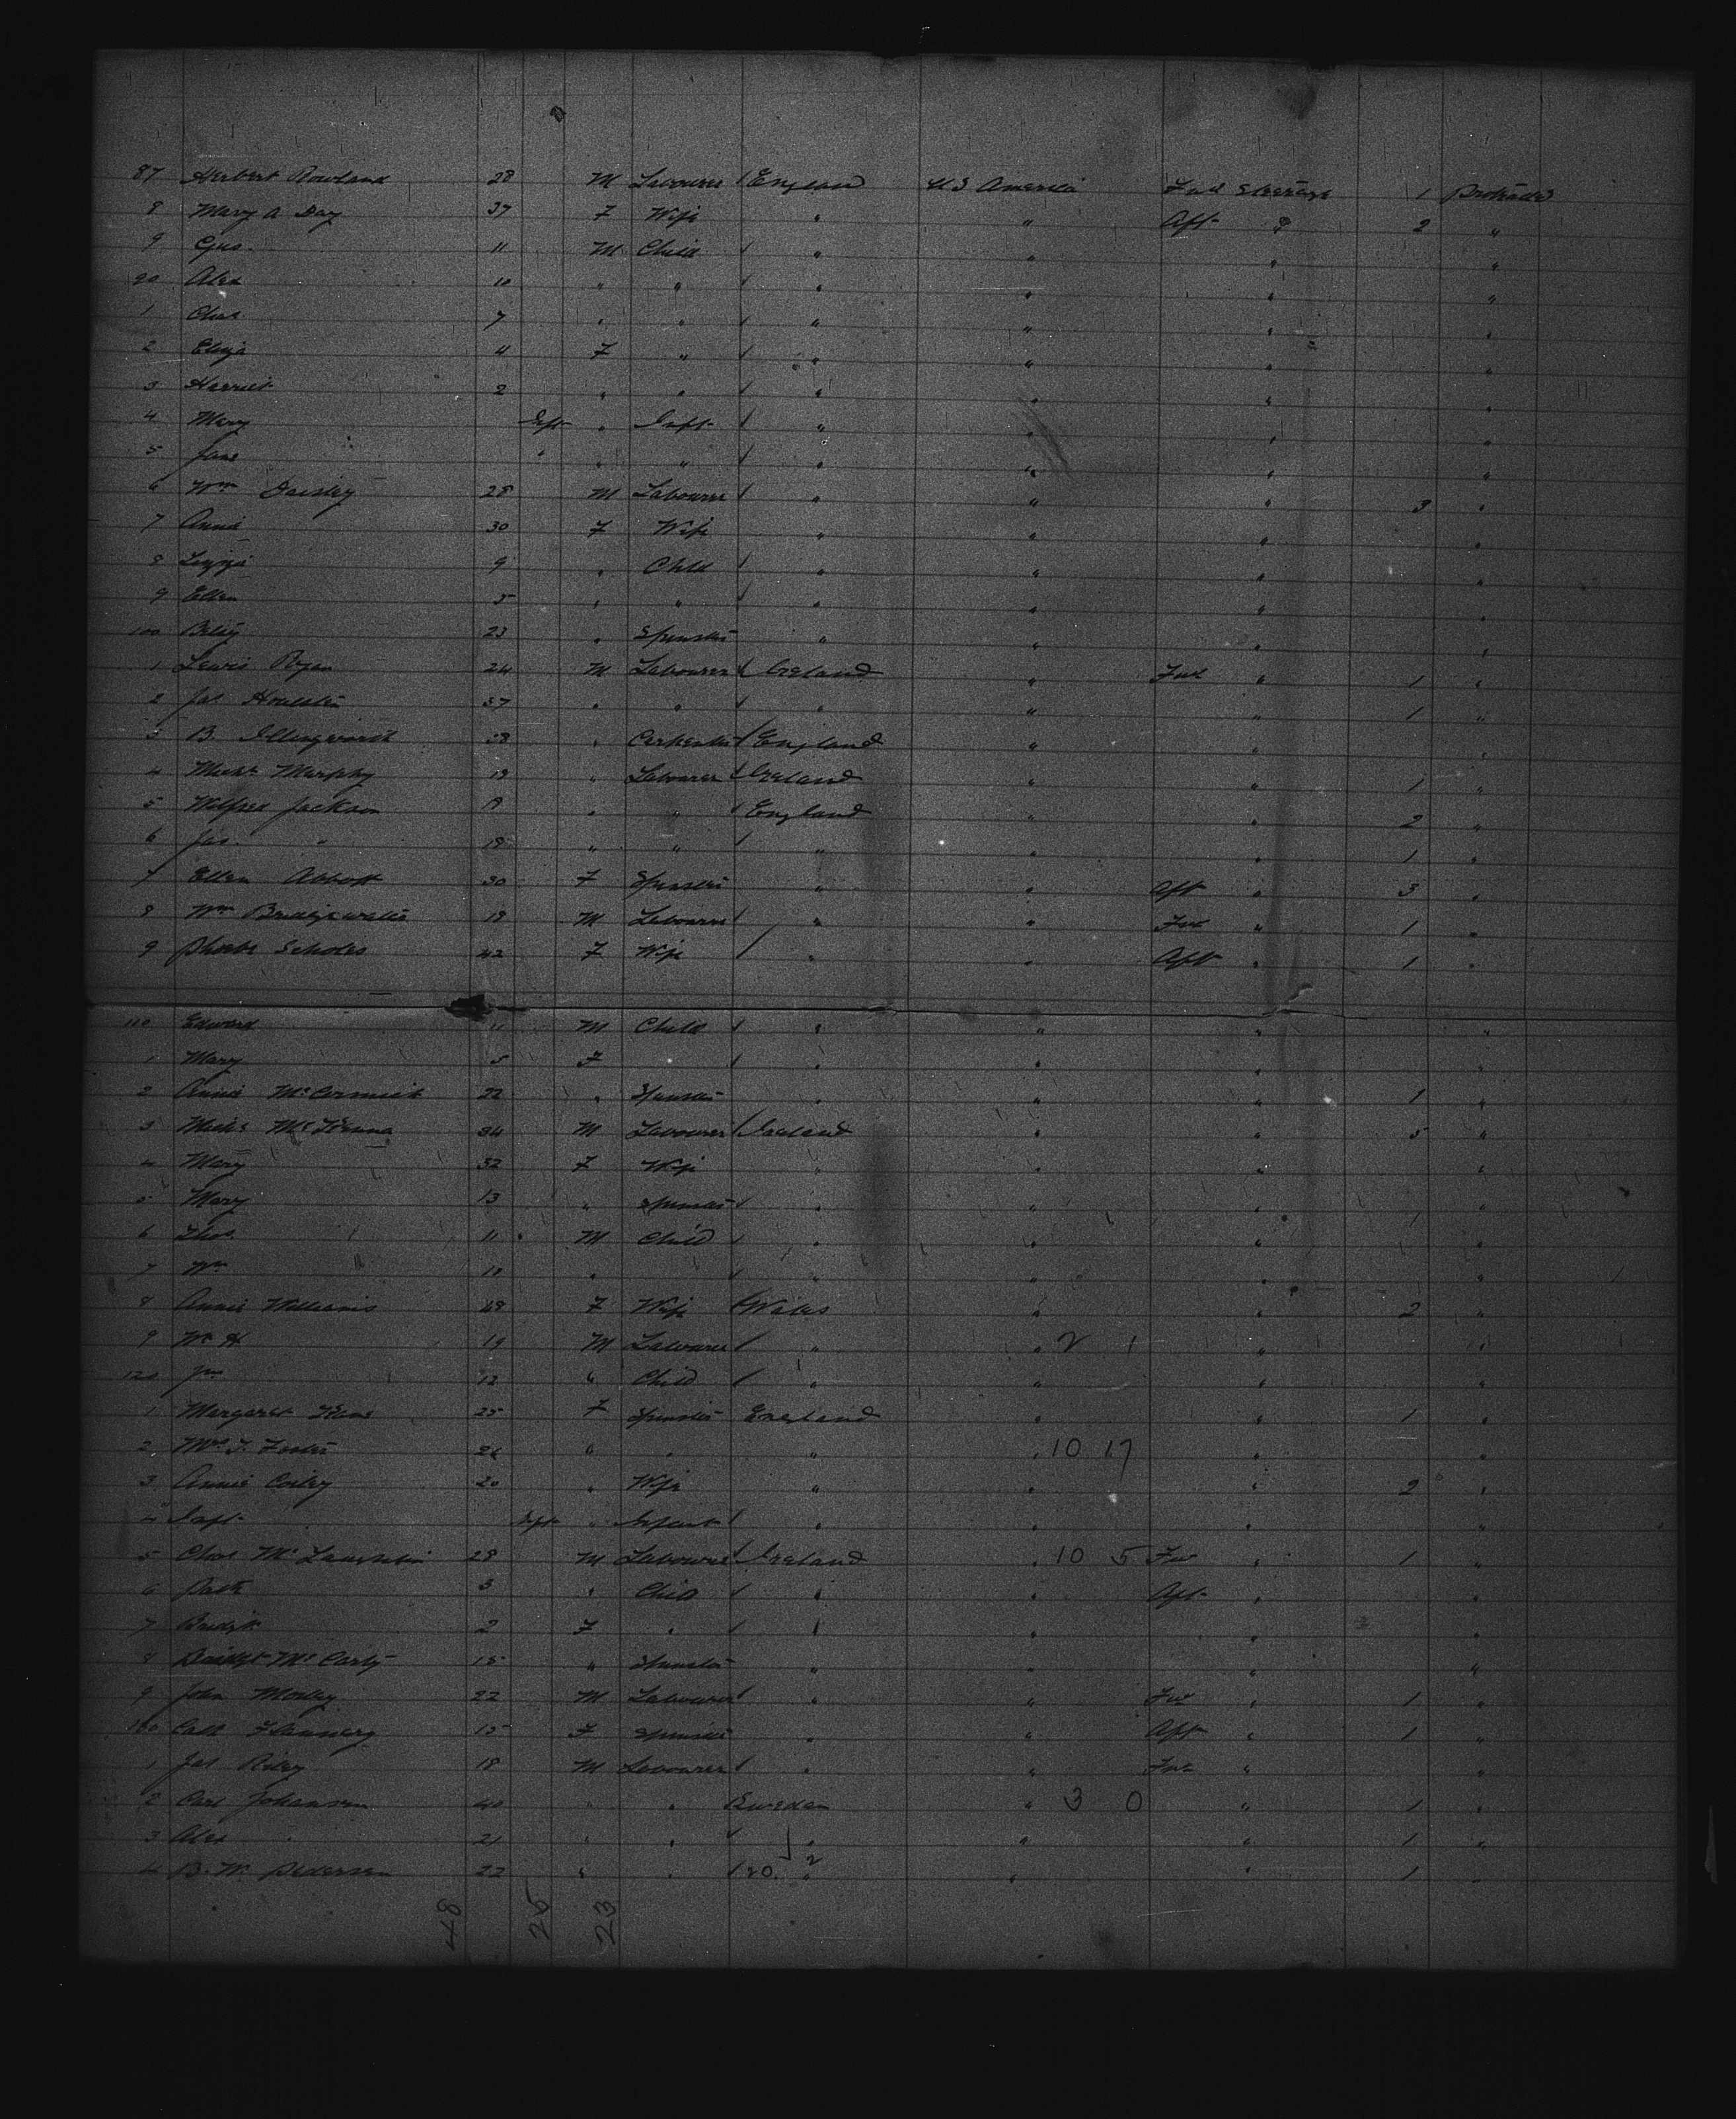 87 Herbert Rowland 28 M Labourer England U S America Fwd Steerage 1 Protracted
8 Mary A Day 37 F Wife " " Aft " 2 "
9 Gus 11 M Child " " " "
90 Alex 10 " " " " " "
1 Chas 7 " " " " " "
2 Eliza 4 F " " " " "
3 Harriet 2 " " " " " "
4 Mary Inft " Inft " " " "
5 Jane " " " " " " "
6 Wm Daisley 28 M Labourer " " " 3 "
7 Annie 30 F Wife " " " "
8 Lizzie 9 " Child " " " "
9 Ellen 5 " " " " " "
100 Betsy 23 " Spinster " " " "
1 Lewis Ryan 24 M Labourer Ireland " Fwd " 1 "
2 Jas 37 " " " " " 1 "
3 B. Illingworth 38 " Carpenter England " " "
4 Michl Murphy 19 " Labourer Ireland " " 1 "
5 Wilfred Jackson " " England " " 2 "
6 Jas " 18 " " " " " 1 "
7 Ellen Abbott 30 F Spinster " " Aft " 3 "
8 Wm Bridgewater 18 M Labourer " " Fwd " 1 "
9 Phoebe Scholes 42 F Wife " " Aft " 1 "
110 Edward 11 M Child " " " "
1 Mary 5 F " " " "
2 Annie McCormick 22 " Spinster " " " 1 "
3 Michl McKenna 34 M Labourer Ireland " " 5 "
4 Mary 32 F Wife " " " "
5 Mary 13 " Spinster " " " "
6 Thos 11 M Child " " " "
7 Wm 10 " " " " "
8 Annie Williams 48 F Wife Wales " " 2 "
9 Wm H 19 M Labourer " " 2 1 " "
120 Jno 12 " Child " " " "
1 Margaret 25 F Spinster England " " 1 "
2 Mrs J. Foster 26 " " " " 10 17 " "
3 Annie 20 " Wife " " " 2 "
4 Inft Inft " Infant " " " "
5 Chas McLaughlin 28 M Labourer Ireland " 10 5 Fwd " 1 "
6 Patk 3 " Child " " Aft " "
7 Bridgt 2 F " " " " "
8 Bridget McCarty 18 " Spinster " " " "
9 John Morley 22 M Labourer " " Fwd " 1 "
130 Cath Flannery 15 F Spinster " " Aft " 1 "
1 Jas Riley 18 M Labourer " " Fwd " "
2 Carl Johansen 40 " " Sweden " 3 0 " 1 "
3 Alex " 21 " " " " " 1 "
4 B. W. Pedersen 22 " " 20 2 " " " 1 "
48 25 23